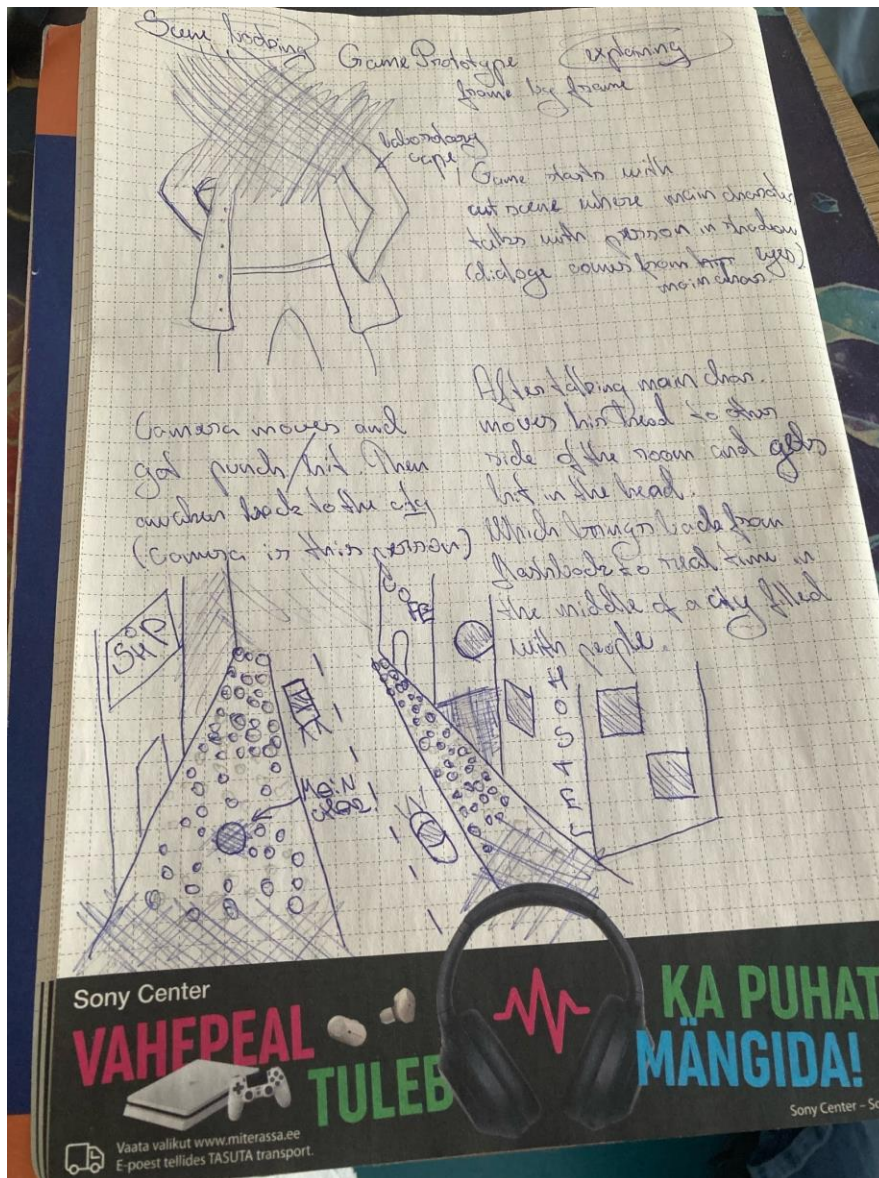 Scene looking
Game Prototype
explaining
frame by frame
laboratory
cape
Game starts with
cut scene where main character
talks with person in shadow
(dialoge comes from eyes)
main char.
After talking main char.
moves his head to other
side of the room and gets
hit in the head.
Which brings back from
flashback to real time in
the middle of a city filled
with people.
Camera moves and
got punch/hit. Then
awaken back to the city
(camera is this person)
SHP
COFFE
MAIN
CHAR!
HOSTAEL
Sony Center
VAHEPEAL
TULEB
KA PUHAT
MÄNGIDA!
Vaata valikut www.miterassa.ee
E-poest tellides TASUTA transport.
Sony Center – So